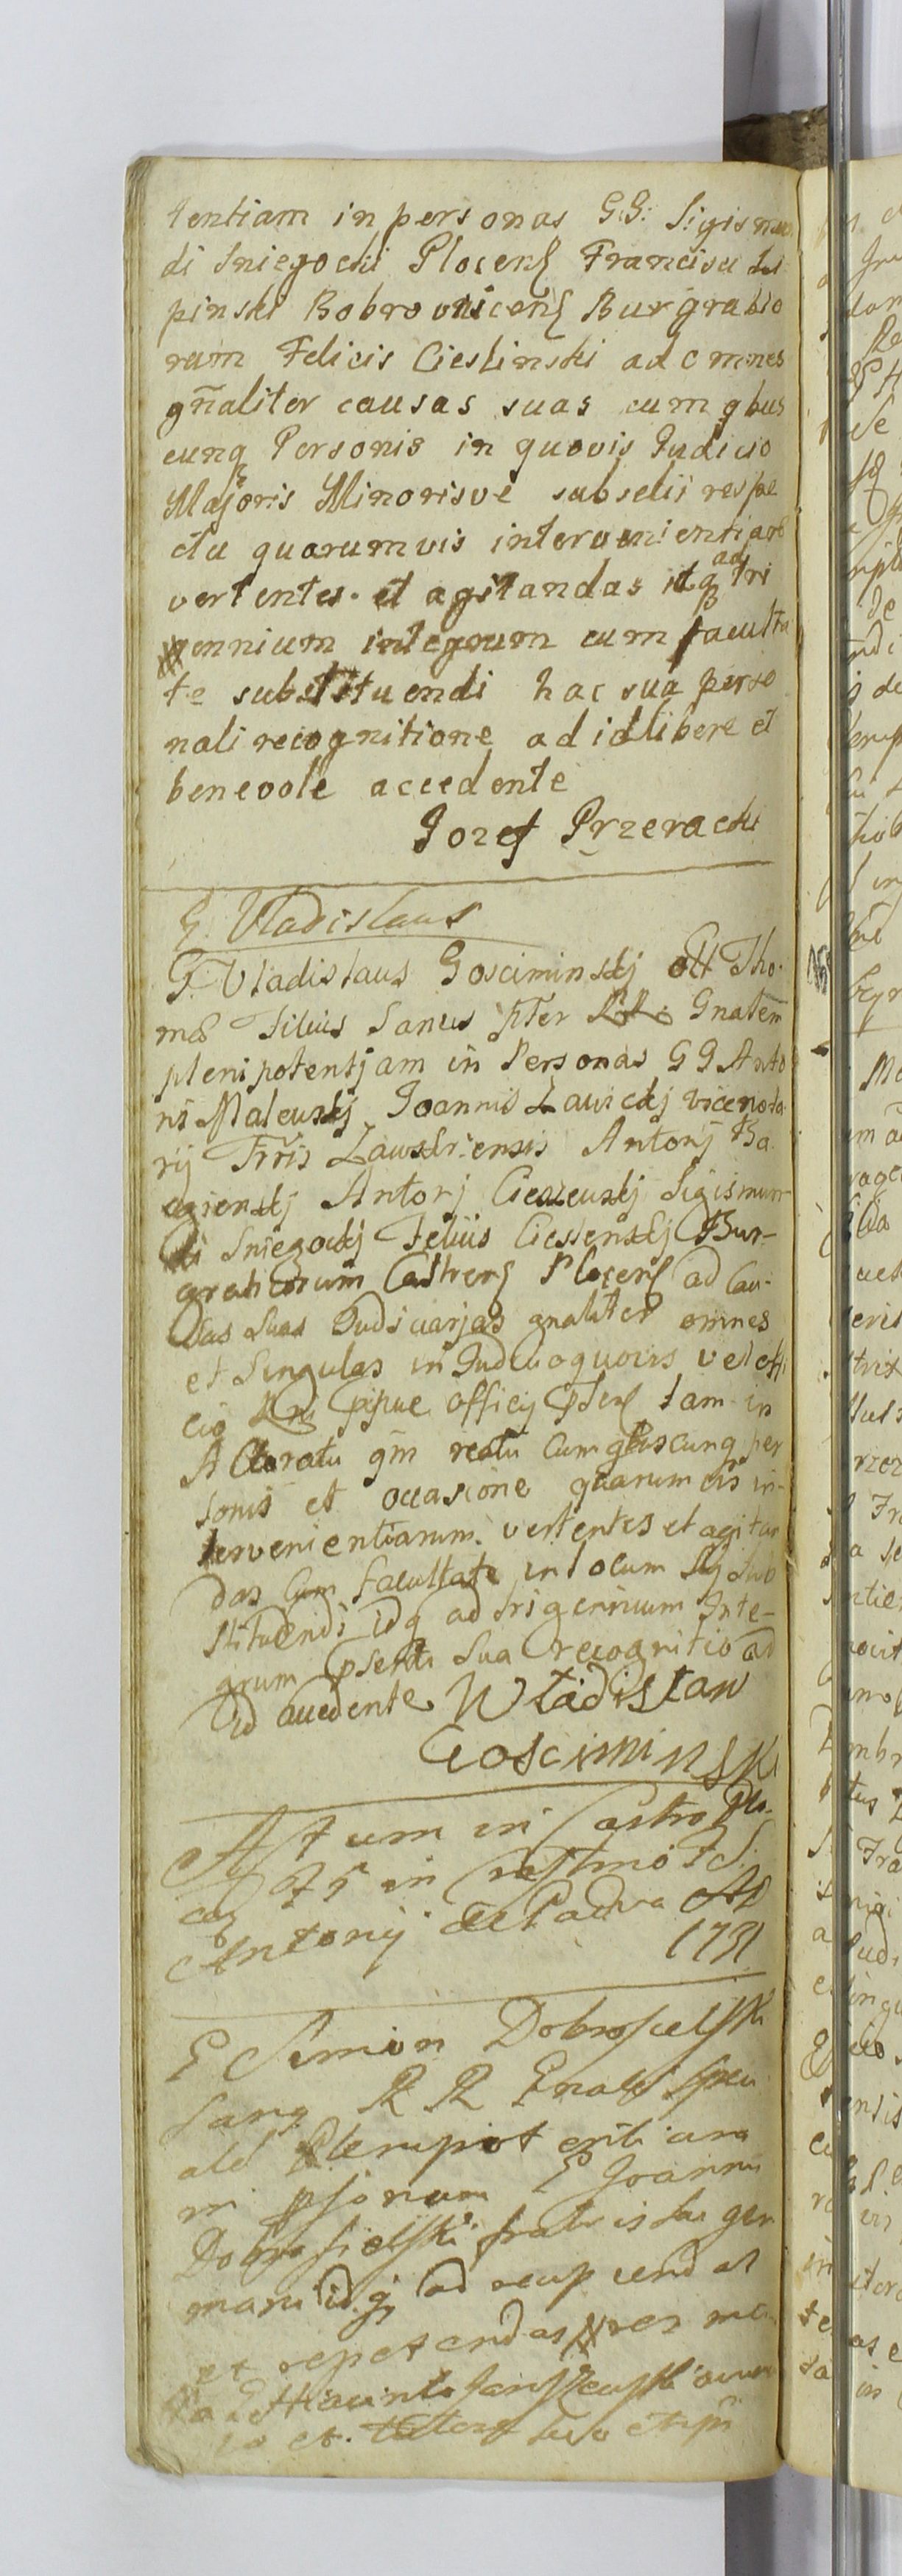 tentiam in personas G.G. Sigismun
di Sniegocki Plocens Francisci Lu
pinski Bobrovnicens Burgrabio
rum Felicis Cieslinski ad omnes
gnaliter causas suas cum qbus
cunq Personis in quovis Judicio
Majoris Minorisve subselii respe
ctu quarumvis intervenientiarū
vertentes et agitandas itq ad tri
ennium integrum cum faculta
te substituendi hac sua perso
nali recognitione ad id libere et
benevole accedente
Jozef Przeracki
G. Vladislaus
G. Vladislaus Gosciminskj olt Tho
mæ Filius Sanus pter Gnalem
plenipotentjam in Personas GG Anto
nj Malewskj Joannis Lawickj vicenota
rij Trris Zawskrensis Antonj Ba
gienskj Antonj Cieszewskj Sigismun
di Sniegockj Felicis Cieslenskj Bur-
grabiorum Castrens Plocens ad Cau-
sas Suas Judiciarjas gnaliter omnes
et Singulas in Judicio quovis vel offi
cio pipue officij pdens tam in
Actoratu qm reatu cum qbuscunq per
sonis et occasione quarumvis in-
tervenientiarum vertentes et agitan
das Cum facultate in locum sij sub
stituendi idq ad trigennium Inte-
grum psenti sua recognitio ad
id accedente Wladislaw
Gosciminski
Actum in Castro Plo-
cen F 5 in Crastino F S.
Antonij de Padua AD
1731
G Simon Dobrosielski
sanq R R Gnalem speci
alē Plenipotentiam
in psonam G Joannis
Dobrosielski fratris sui ger
mani idq ad recupiend at
et repetendas res